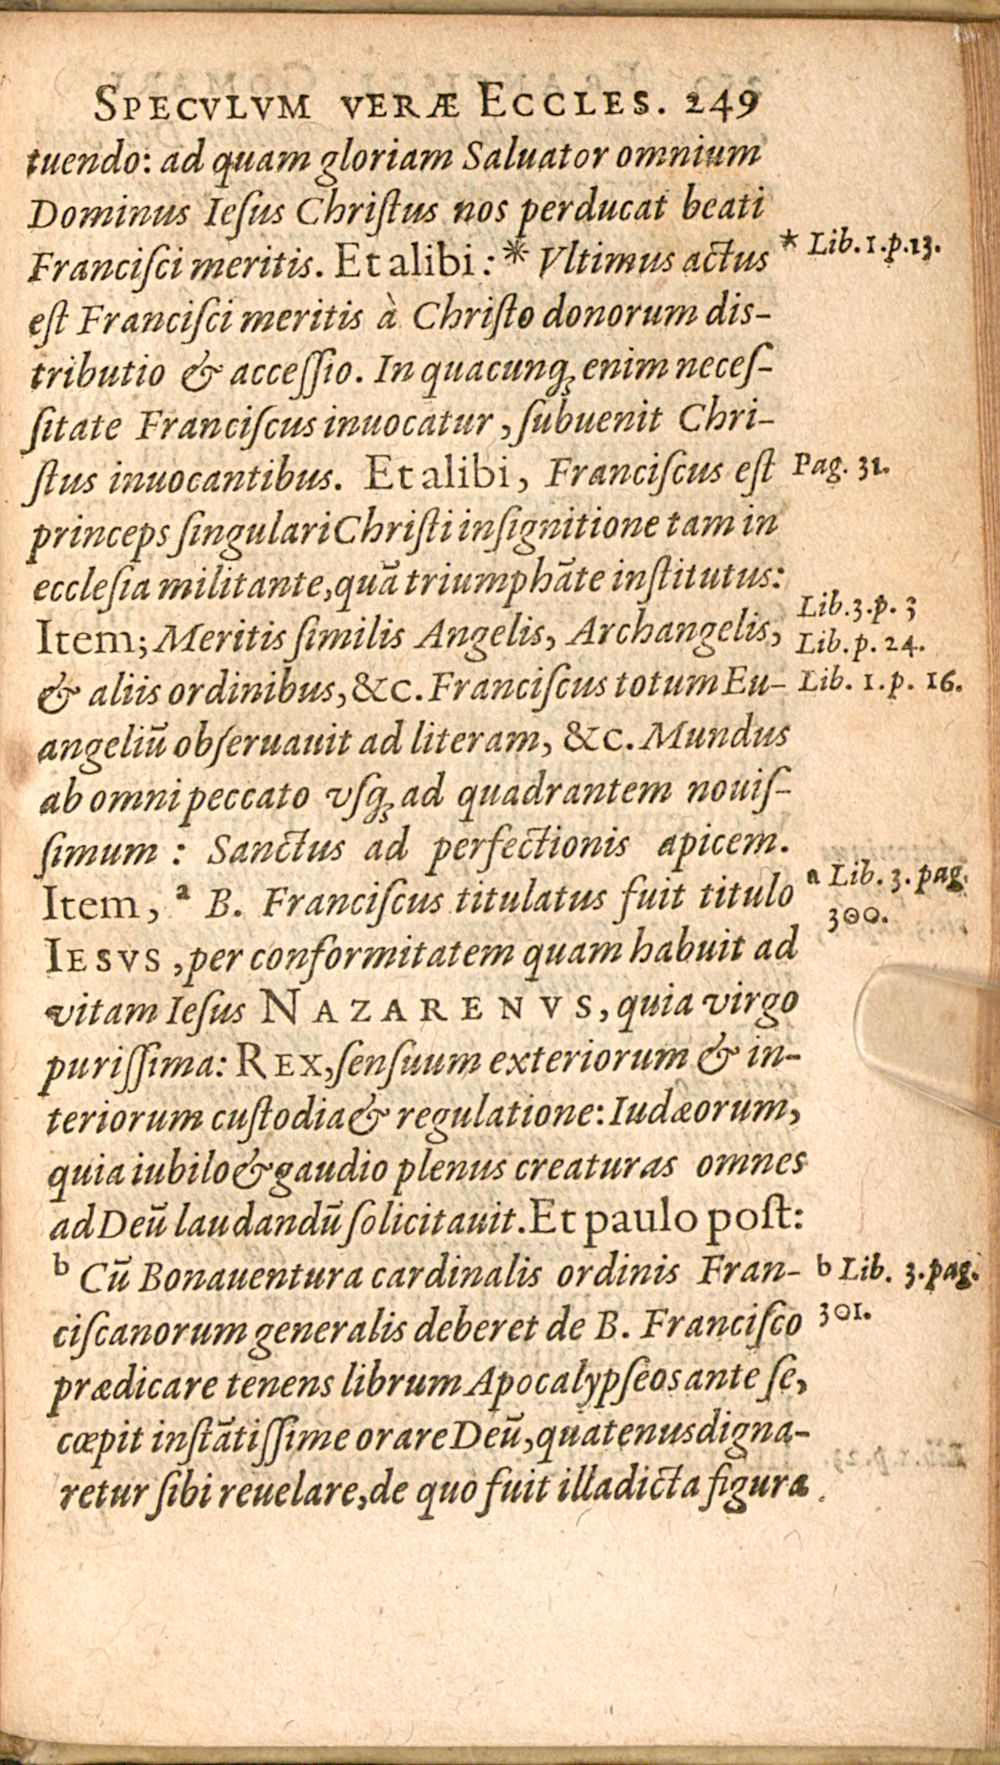 SPECVLVM VERÆ ECCLES. 249
tuendo: ad quam gloriam Saluator omnium
Dominus Ieſus Chriſtus nos perducat beati
Franciſci meritis. Et alibi: * Vltimus actus
* Lib. 1. p. 13.
eſt Franciſci meritis à Chriſto donorum diſ-
tributio & acceſſio. In quacunq; enim neceſ-
ſitate Franciſcus inuocatur, ſubuenit Chri-
ſtus inuocantibus. Et alibi, Franciſcus eſt
Pag. 31.
princeps ſingulari Chriſti inſignitione tam in
eccleſia militante, quā triumphāte inſtitutus:
Lib. 3. p. 3
Item; Meritis ſimilis Angelis, Archangelis,
Lib. p. 24.
& aliis ordinibus, &c. Franciſcus totum Eu-
Lib. 1. p. 16.
angeliū obſeruauit ad literam, &c. Mundus
ab omni peccato vſq; ad quadrantem nouiſ-
ſimum: Sanctus ad perfectionis apicem.
Item, a B. Franciſcus titulatus fuit titulo
a Lib. 3. pag.
300.
IESVS, per conformitatem quam habuit ad
vitam Ieſus NAZARENVS, quia virgo
puriſſima: REX, ſenſuum exteriorum & in-
teriorum cuſtodia & regulatione: Iudæorum,
quia iubilo & gaudio plenus creaturas omnes
ad Deū laudandū ſolicitauit. Et paulo poſt:
b Cū Bonauentura cardinalis ordinis Fran-
b Lib. 3. pag.
ciſcanorum generalis deberet de B. Franciſco
301.
prædicare tenens librum Apocalypſeos ante ſe,
cœpit inſtātiſſime orare Deū, quatenus digna-
retur ſibi reuelare, de quo fuit illa dicta figura